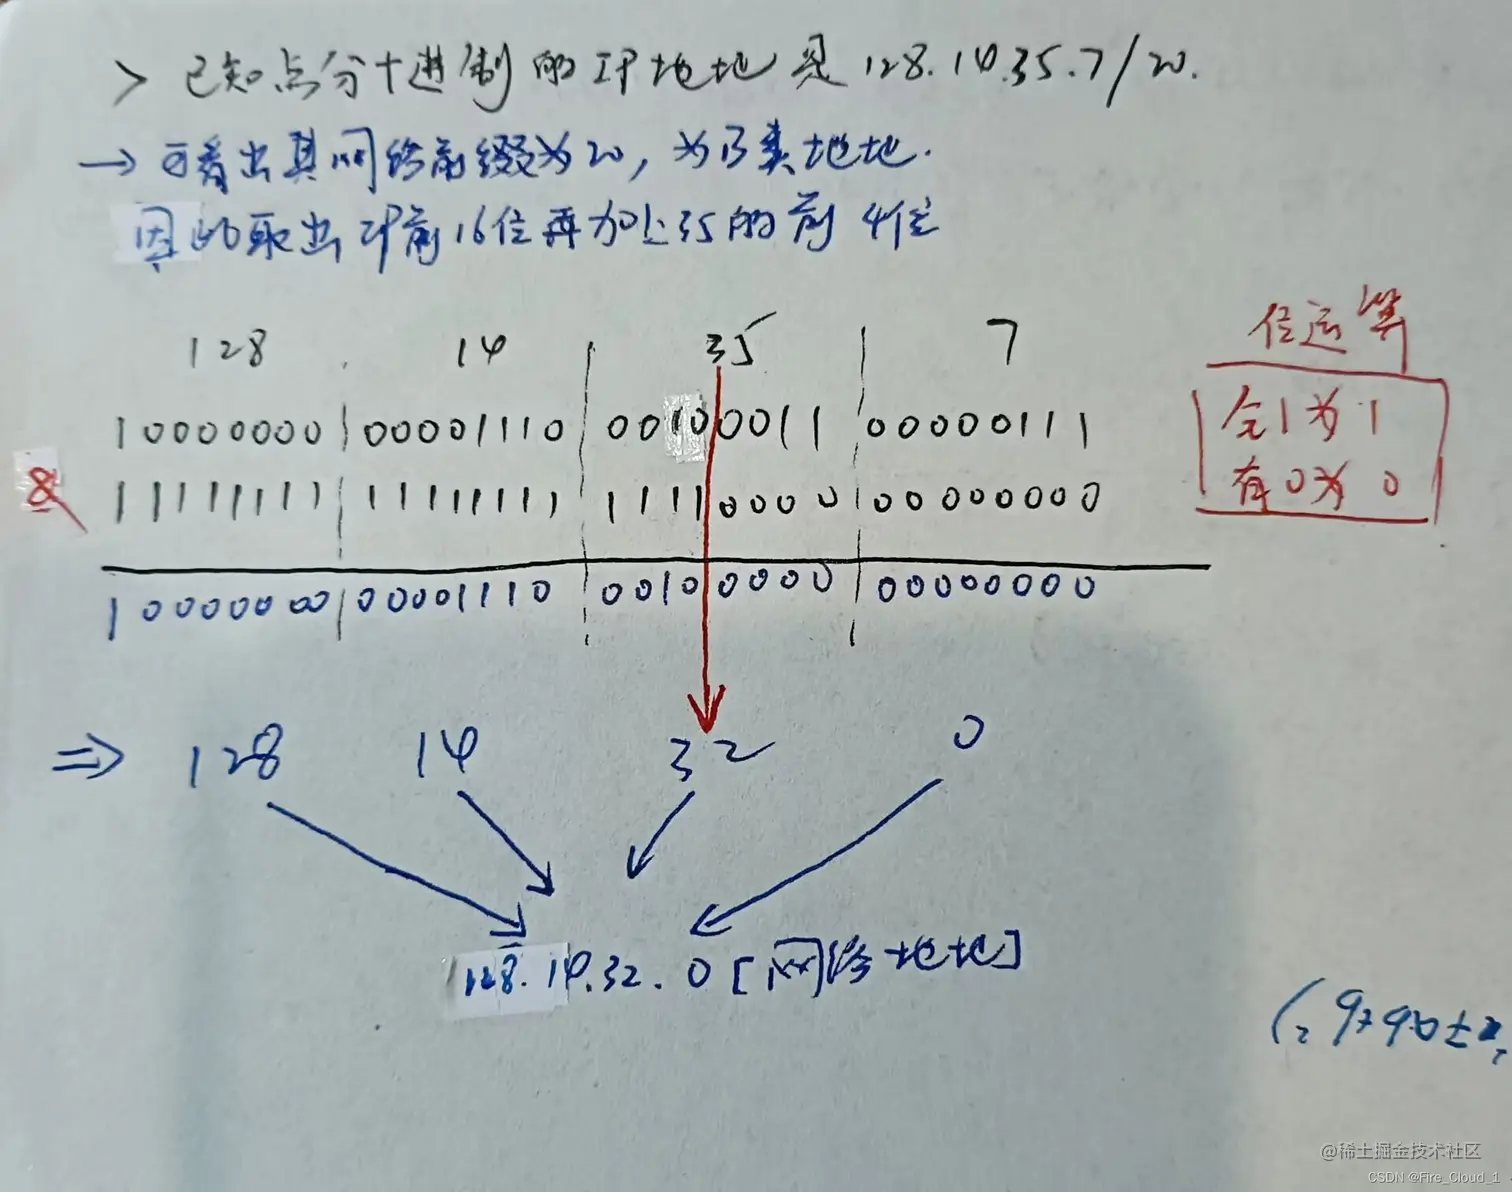 > 已知点分十进制的IP地址是128.14.35.7/20.
→ 可看出其网络前缀为20，为B类地址.
因此取出IP前16位再加上35的前4位
128 . 14 35 7
10000000 00001110 00100011 00000111
& 11111111 11111111 11110000 00000000
10000000 00001110 00100000 00000000
位运算
全1为1
有0为0
⇒ 128 14 32 0
128.14.32.0 [网络地址]
@稀土掘金技术社区
CSDN @Fire_Cloud_1